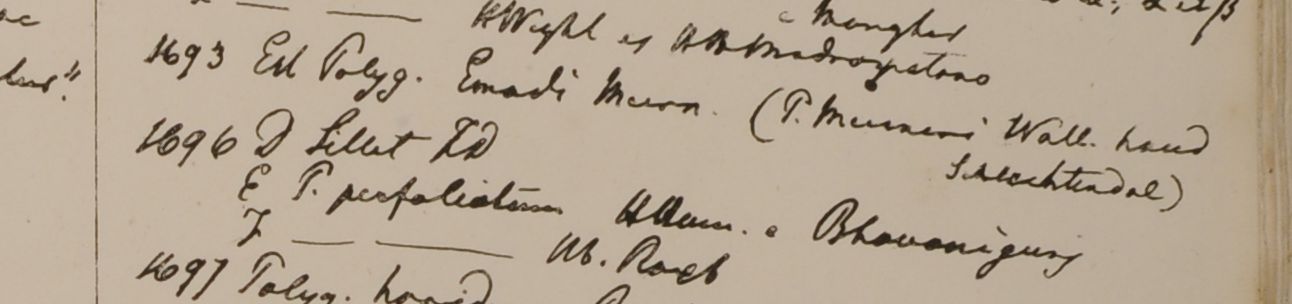 HWight ex HB Madraspatano
1693 Est Polyg. Emodi Meisn. (P. Meisneri Wall. haud
Schlechtendal)
1696 D Sillet FD
E P. perfoliatum HHam. e Bhavanigunj
F — — Hb. Roxb
1697 Polyg.